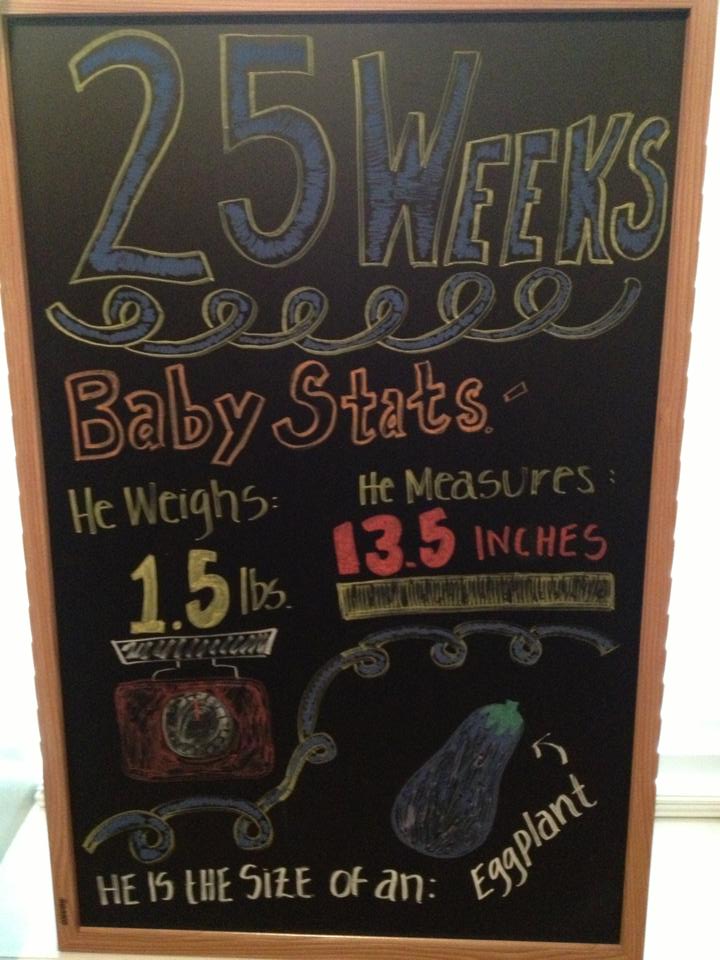 25 WEEKS
Baby Stats:
He Weighs:
1.5 lbs.
He Measures:
13.5 INCHES
HE IS tHE SIZE Of an:
Eggplant